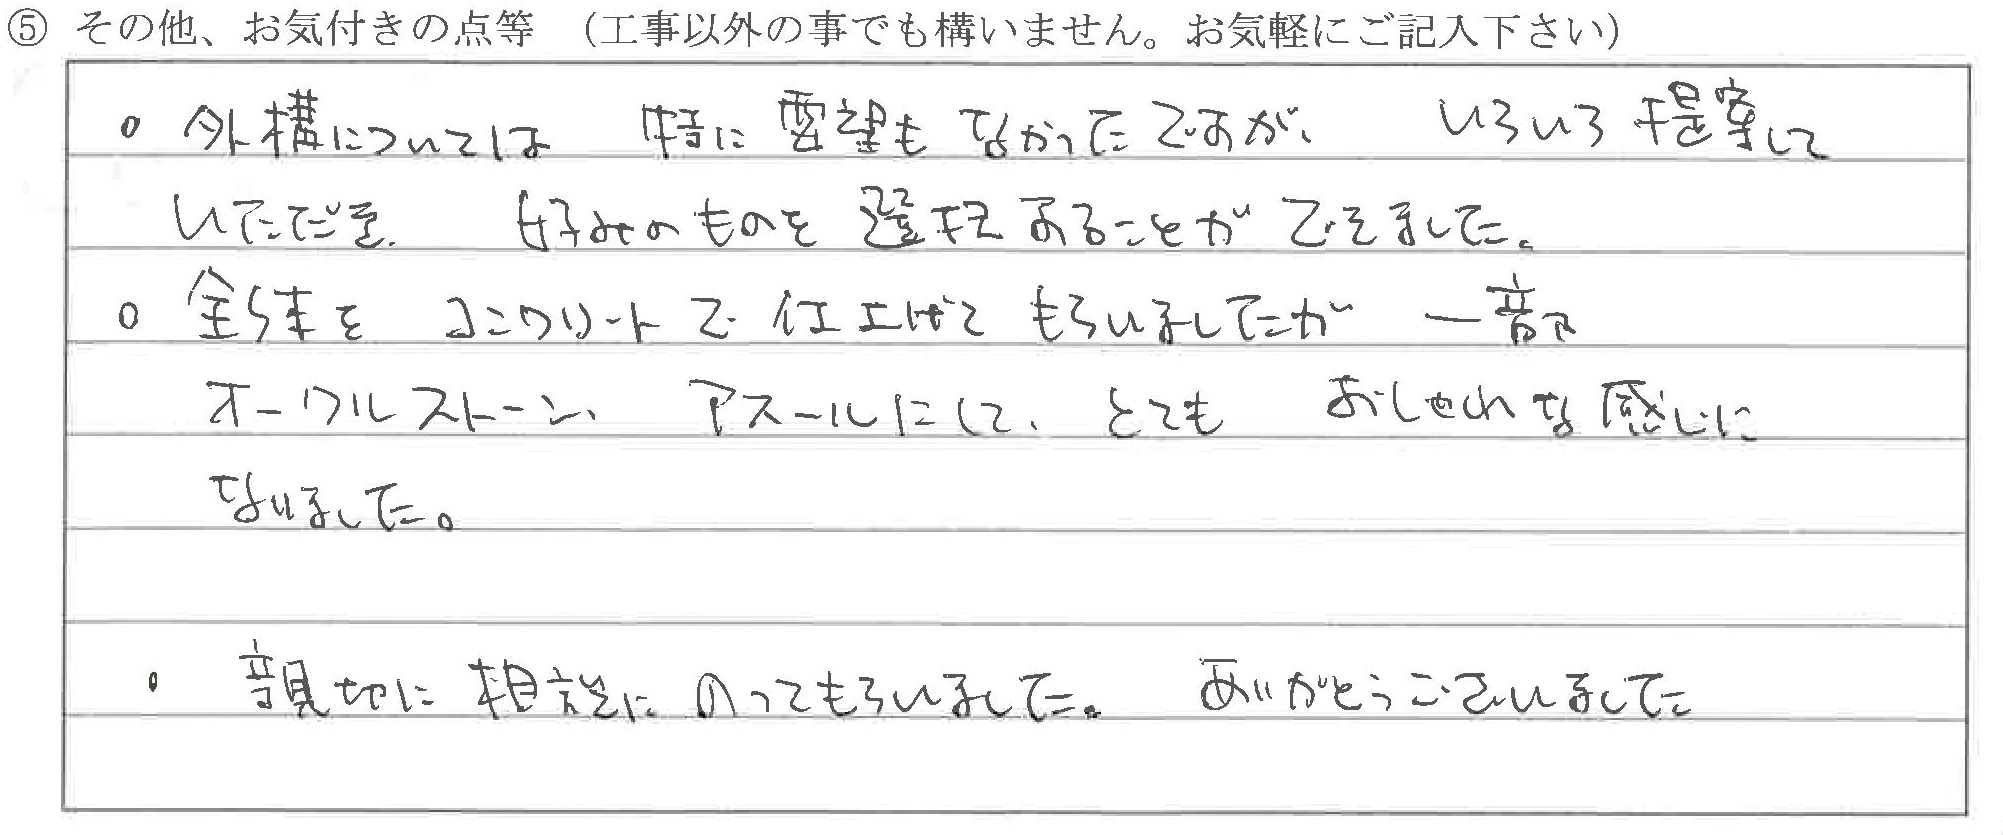 ⑤ その他、お気付きの点等 (工事以外の事でも構いません。お気軽にご記入下さい)
○ 外構については 特に要望もなかったですが、 いろいろ提案して
いただき、 好みのものを選択することができました。
○ 全体を コンクリートで仕上げてもらいましたが 一部
オークルストーン、 アスールにして、とても おしゃれな感じに
なりました。
・ 親切に相談にのってもらいました。 ありがとうございました